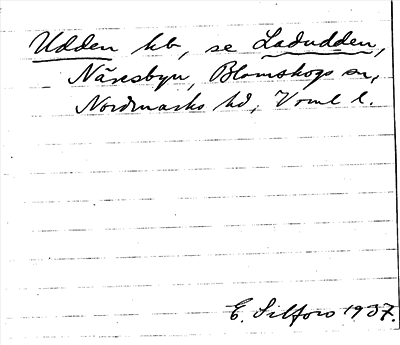 Udden hb, se Ladudden,
Näresbyn, Blomskogs sn,
Nordmarks hd, Vrml l.
E. Silfors 1937.